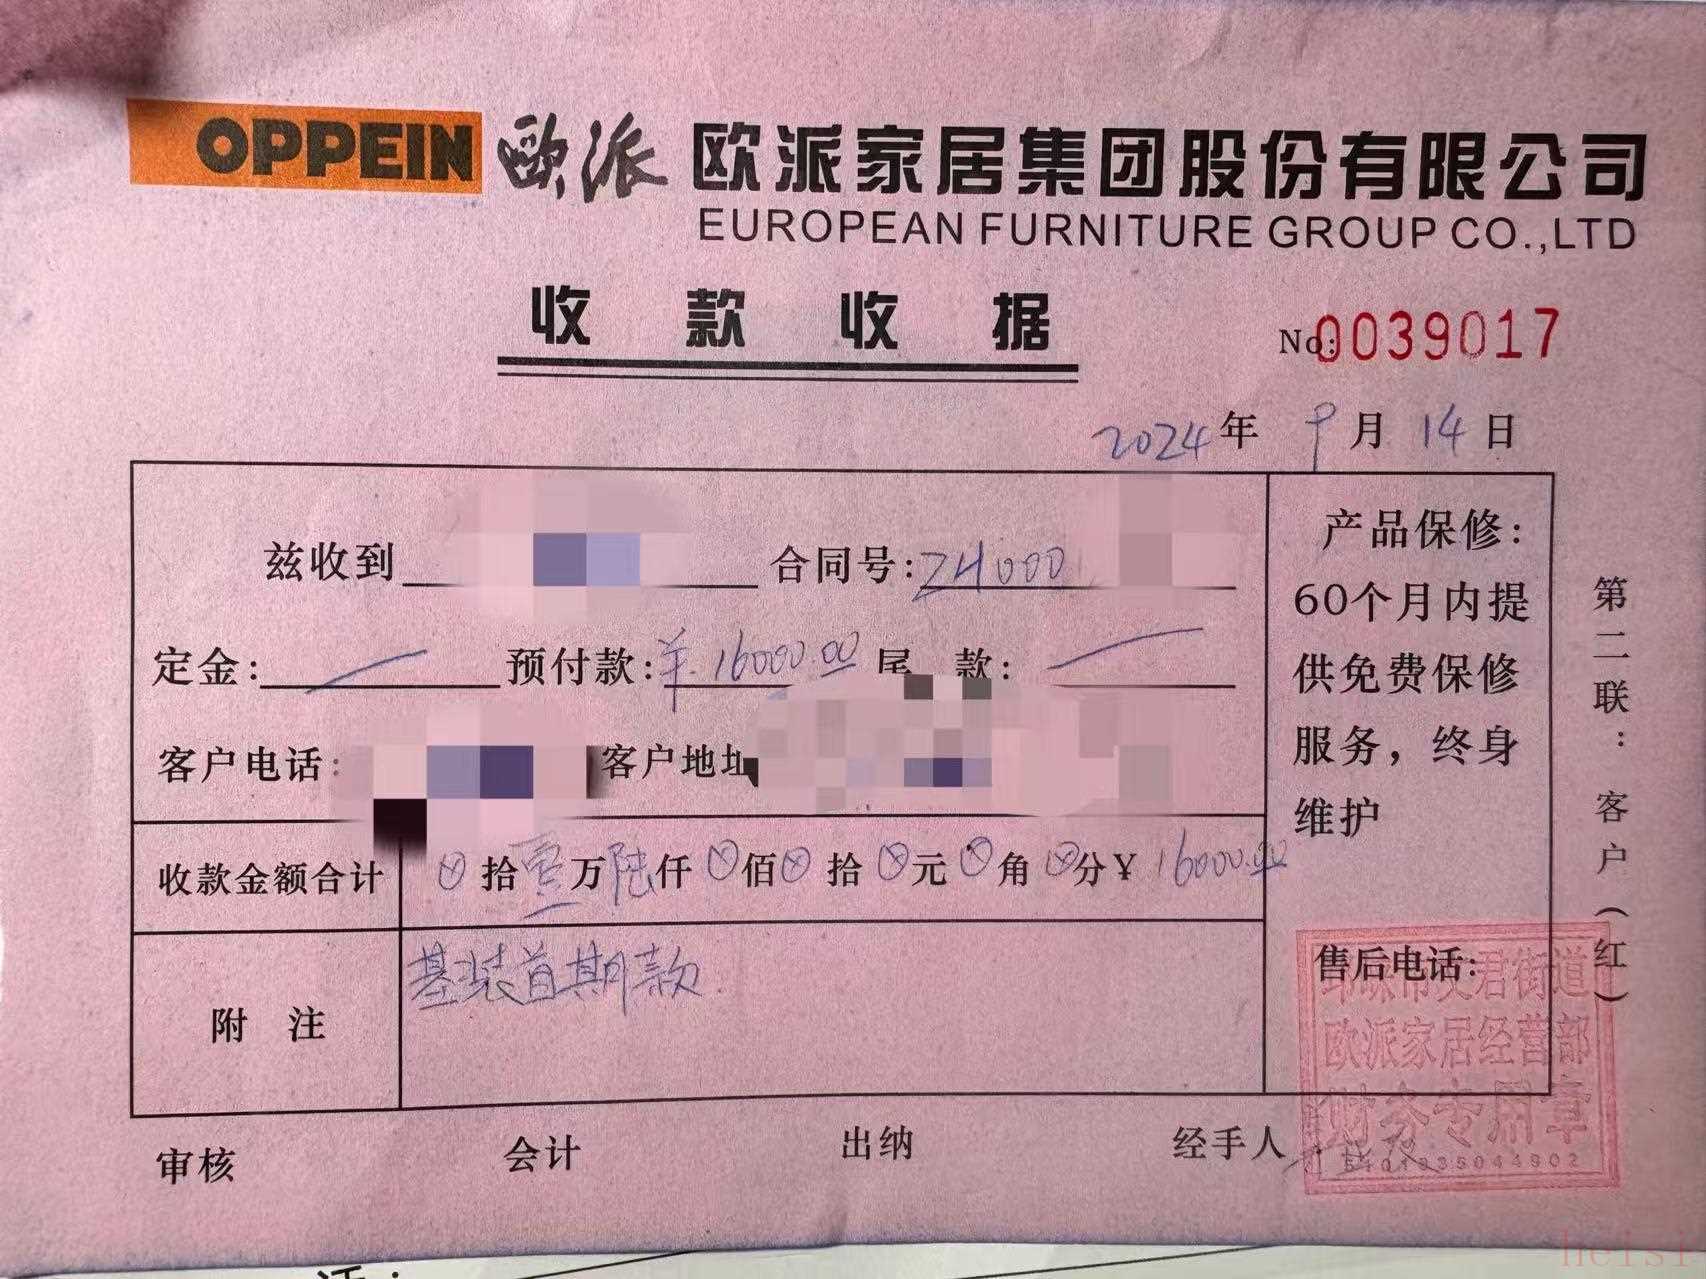 OPPEIN 欧派 欧派家居集团股份有限公司
EUROPEAN FURNITURE GROUP CO.,LTD
收款收据
No:0039017
2024年9月14日
兹收到 合同号:24000
定金: 预付款:¥.16000.00 尾款:
客户电话: 客户地址
收款金额合计 拾壹万陆仟 佰 拾 元 角 分¥ 16000.00
附注 基装首期款
产品保修:
60个月内提
供免费保修
服务,终身
维护
售后电话:
第二联:客户(红)
邛崃市文君街道
欧派家居经营部
财务专用章
审核 会计 出纳 经手人
heisi